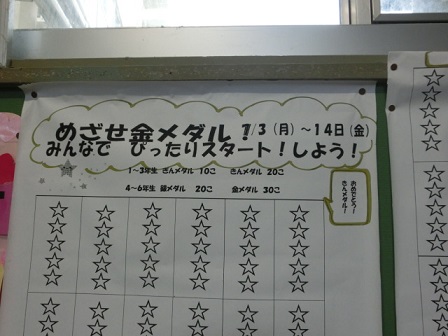 めざせ金メダル！ 7/3（月）～14日（金）
みんなで ぴったりスタート！しよう！
1～3年生 ぎんメダル 10こ きんメダル 20こ
4～6年生 銀メダル 20こ 金メダル 30こ
おめでとう！
きんメダル！